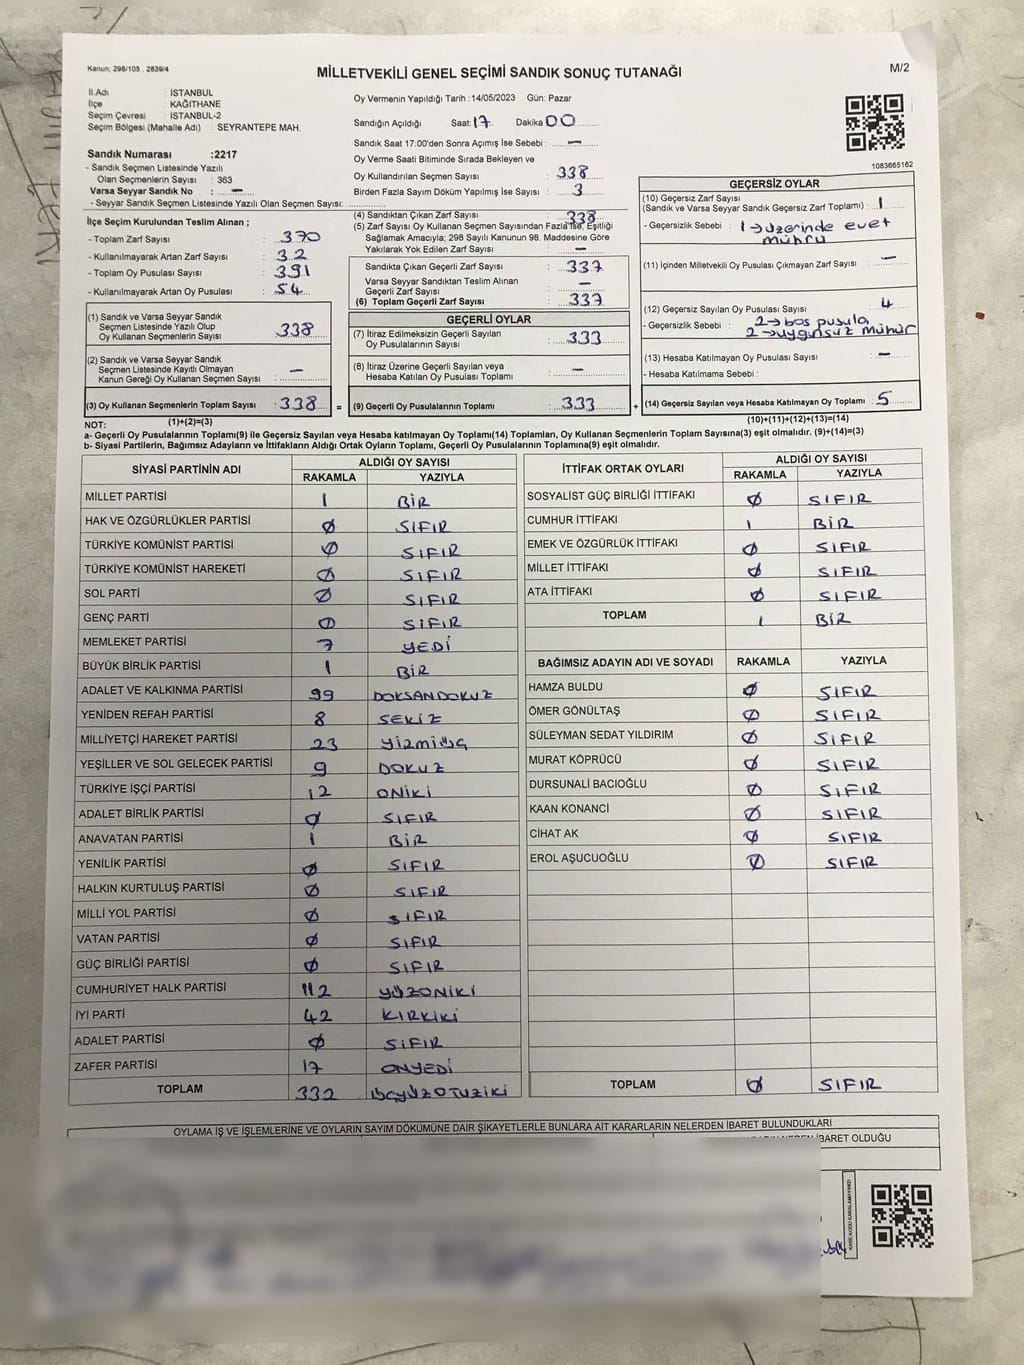 Kanun: 298/105 , 2839/4
MİLLETVEKİLİ GENEL SEÇİMİ SANDIK SONUÇ TUTANAĞI
M/2
İl Adı : İSTANBUL
İlçe : KAĞITHANE
Seçim Çevresi : İSTANBUL-2
Seçim Bölgesi (Mahalle Adı) : SEYRANTEPE MAH.
Sandık Numarası :2217
- Sandık Seçmen Listesinde Yazılı
Olan Seçmenlerin Sayısı : 363
Varsa Seyyar Sandık No : —
- Seyyar Sandık Seçmen Listesinde Yazılı Olan Seçmen Sayısı:
Oy Vermenin Yapıldığı Tarih :14/05/2023 Gün: Pazar
Sandığın Açıldığı Saat: 17 Dakika 00
Sandık Saat 17:00'den Sonra Açımış İse Sebebi : —
Oy Verme Saati Bitiminde Sırada Bekleyen ve
Oy Kullandırılan Seçmen Sayısı : 338
Birden Fazla Sayım Döküm Yapılmış İse Sayısı : 3
1083665162
İlçe Seçim Kurulundan Teslim Alınan ;
- Toplam Zarf Sayısı : 370
- Kullanılmayarak Artan Zarf Sayısı : 32
- Toplam Oy Pusulası Sayısı : 391
- Kullanılmayarak Artan Oy Pusulası : 54
(1) Sandık ve Varsa Seyyar Sandık
Seçmen Listesinde Yazılı Olup
Oy Kullanan Seçmenlerin Sayısı : 338
(2) Sandık ve Varsa Seyyar Sandık
Seçmen Listesinde Kayıtlı Olmayan
Kanun Gereği Oy Kullanan Seçmen Sayısı : —
(3) Oy Kullanan Seçmenlerin Toplam Sayısı : 338 =
(4) Sandıktan Çıkan Zarf Sayısı : 338
(5) Zarf Sayısı Oy Kullanan Seçmen Sayısından Fazla İse, Eşitliği
Sağlamak Amacıyla; 298 Sayılı Kanunun 98. Maddesine Göre
Yakılarak Yok Edilen Zarf Sayısı : —
Sandıkta Çıkan Geçerli Zarf Sayısı : 337
Varsa Seyyar Sandıktan Teslim Alınan
Geçerli Zarf Sayısı : —
(6) Toplam Geçerli Zarf Sayısı : 337
GEÇERLİ OYLAR
(7) İtiraz Edilmeksizin Geçerli Sayılan
Oy Pusulalarının Sayısı : 333
(8) İtiraz Üzerine Geçerli Sayılan veya
Hesaba Katılan Oy Pusulası Toplamı : —
(9) Geçerli Oy Pusulalarının Toplamı : 333 +
GEÇERSİZ OYLAR
(10) Geçersiz Zarf Sayısı
(Sandık ve Varsa Seyyar Sandık Geçersiz Zarf Toplamı) : 1
- Geçersizlik Sebebi : 1→üzerinde evet
mührü
(11) İçinden Milletvekili Oy Pusulası Çıkmayan Zarf Sayısı : —
(12) Geçersiz Sayılan Oy Pusulası Sayısı : 4
- Geçersizlik Sebebi : 2→boş pusula
2→uygunsuz mühür
(13) Hesaba Katılmayan Oy Pusulası Sayısı : —
- Hesaba Katılmama Sebebi :
(14) Geçersiz Sayılan veya Hesaba Katılmayan Oy Toplamı : 5
NOT: (1)+(2)=(3) (10)+(11)+(12)+(13)=(14)
a- Geçerli Oy Pusulalarının Toplamı(9) ile Geçersiz Sayılan veya Hesaba katılmayan Oy Toplamı(14) Toplamları, Oy Kullanan Seçmenlerin Toplam Sayısına(3) eşit olmalıdır. (9)+(14)=(3)
b- Siyasi Partilerin, Bağımsız Adayların ve İttifakların Aldığı Ortak Oyların Toplamı, Geçerli Oy Pusulalarının Toplamına(9) eşit olmalıdır.
SİYASİ PARTİNİN ADI ALDIĞI OY SAYISI
RAKAMLA YAZIYLA
MİLLET PARTİSİ 1 BİR
HAK VE ÖZGÜRLÜKLER PARTİSİ 0 SIFIR
TÜRKİYE KOMÜNİST PARTİSİ 0 SIFIR
TÜRKİYE KOMÜNİST HAREKETİ 0 SIFIR
SOL PARTİ 0 SIFIR
GENÇ PARTİ 0 SIFIR
MEMLEKET PARTİSİ 7 YEDİ
BÜYÜK BİRLİK PARTİSİ 1 BİR
ADALET VE KALKINMA PARTİSİ 99 DOKSANDOKUZ
YENİDEN REFAH PARTİSİ 8 SEKİZ
MİLLİYETÇİ HAREKET PARTİSİ 23 Yirmiüç
YEŞİLLER VE SOL GELECEK PARTİSİ 9 DOKUZ
TÜRKİYE İŞÇİ PARTİSİ 12 ONİKİ
ADALET BİRLİK PARTİSİ 0 SIFIR
ANAVATAN PARTİSİ 1 BİR
YENİLİK PARTİSİ 0 SIFIR
HALKIN KURTULUŞ PARTİSİ 0 SIFIR
MİLLİ YOL PARTİSİ 0 SIFIR
VATAN PARTİSİ 0 SIFIR
GÜÇ BİRLİĞİ PARTİSİ 0 SIFIR
CUMHURİYET HALK PARTİSİ 112 YÜZONİKİ
İYİ PARTİ 42 KIRKİKİ
ADALET PARTİSİ 0 SIFIR
ZAFER PARTİSİ 17 ONYEDİ
TOPLAM 332 üçyüzOTUZİKİ
İTTİFAK ORTAK OYLARI ALDIĞI OY SAYISI
RAKAMLA YAZIYLA
SOSYALİST GÜÇ BİRLİĞİ İTTİFAKI 0 SIFIR
CUMHUR İTTİFAKI 1 BİR
EMEK VE ÖZGÜRLÜK İTTİFAKI 0 SIFIR
MİLLET İTTİFAKI 0 SIFIR
ATA İTTİFAKI 0 SIFIR
TOPLAM 1 BİR
BAĞIMSIZ ADAYIN ADI VE SOYADI RAKAMLA YAZIYLA
HAMZA BULDU 0 SIFIR
ÖMER GÖNÜLTAŞ 0 SIFIR
SÜLEYMAN SEDAT YILDIRIM 0 SIFIR
MURAT KÖPRÜCÜ 0 SIFIR
DURSUNALİ BACIOĞLU 0 SIFIR
KAAN KONANCİ 0 SIFIR
CİHAT AK 0 SIFIR
EROL AŞUCUOĞLU 0 SIFIR
TOPLAM 0 SIFIR
OYLAMA İŞ VE İŞLEMLERİNE VE OYLARIN SAYIM DÖKÜMÜNE DAİR ŞİKAYETLERLE BUNLARA AİT KARARLARIN NELERDEN İBARET BULUNDUKLARI
İBARET OLDUĞU
KARE KODU KARALAMAYINIZ!